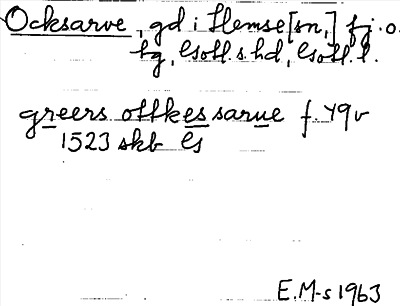 Ocksarve, gd i Hemse [sn,] fj. o.
tg, Gotl. s. hd, Gotl. l.
greers offkes sarue f. 79v
1523 skb
E.M-s 1963